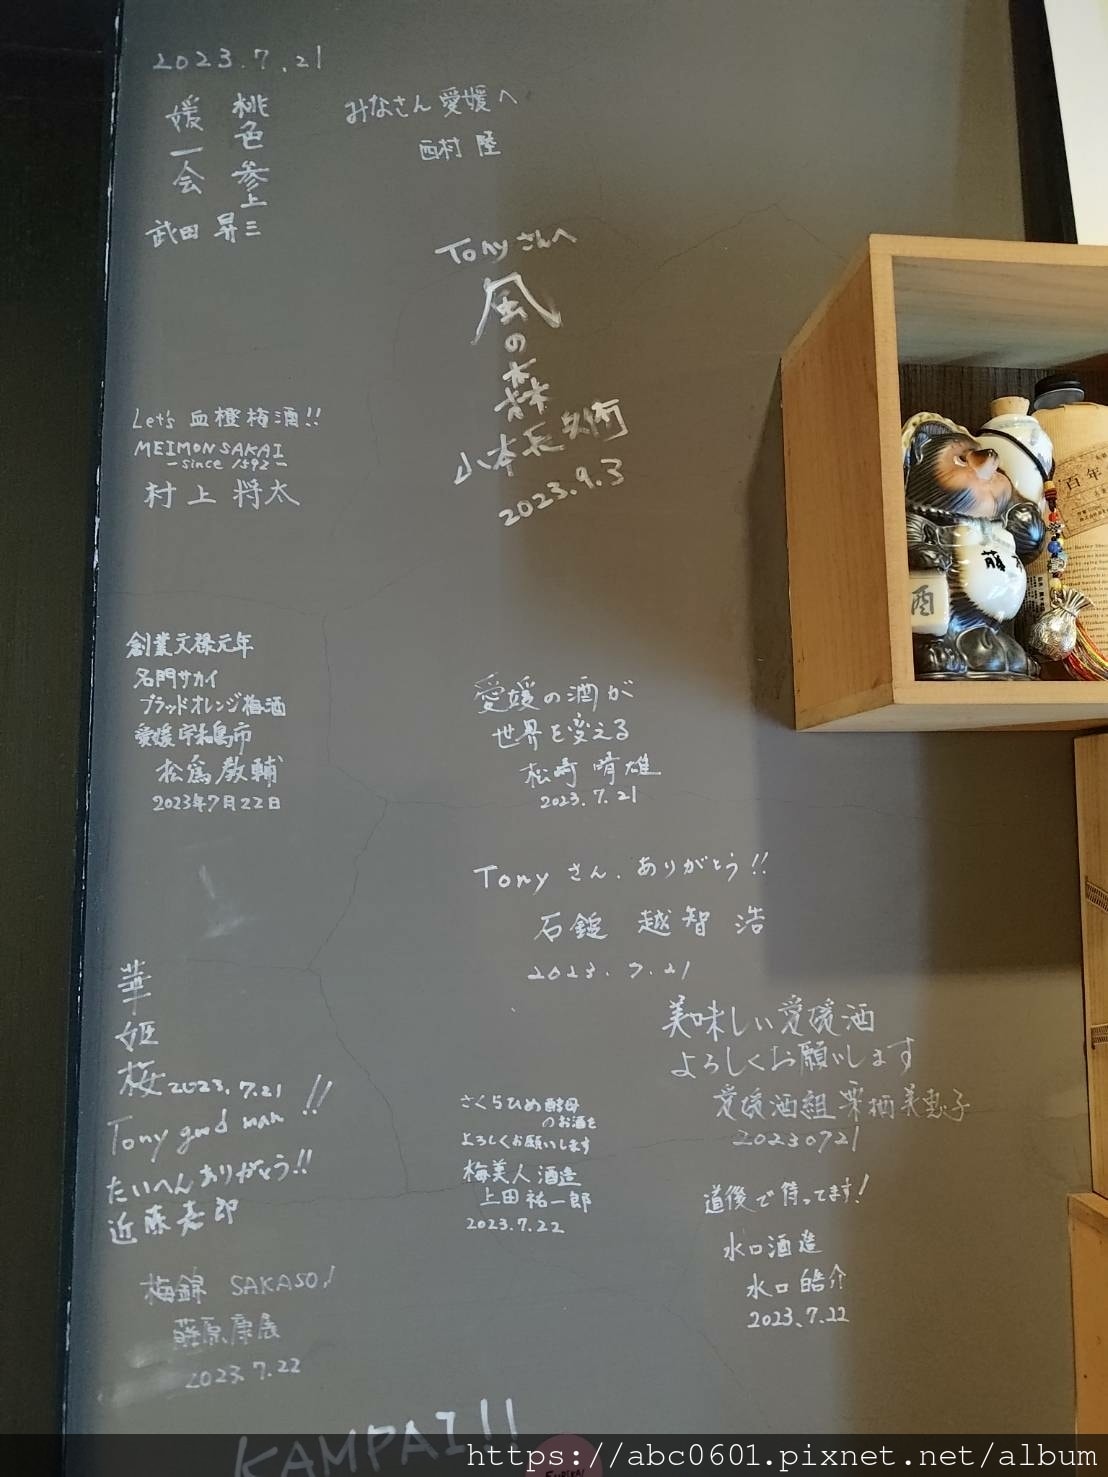 2023.7.21
桃色 参上
媛一会
武田 昇三
みなさん愛媛へ
西村 陸
Tonyさんへ
風の森
山本長兵衛
2023.9.3
Let's 血橙梅酒!!
MEIMON SAKAI
-since 1592-
村上 将太
創業文禄元年
名門サカイ
ブラッドオレンジ梅酒
愛媛宇和島市
松島教輔
2023年7月22日
愛媛の酒が
世界を変える
松崎 晴雄
2023.7.21
Tony さん、ありがとう!!
石鎚 越智 浩
2023.7.21
美味しい愛媛酒
よろしくお願いします
愛媛酒組 栗栖美恵子
20230721
華姫桜 2023.7.21
Tony good man !!
たいへんありがとう!!
近藤嘉郎
さくらひめ酵母
のお酒を
よろしくお願いします
梅美人酒造
上田祐一郎
2023.7.22
道後で待ってます!
水口酒造
水口皓介
2023.7.22
梅錦 SAKASO!
藤原康展
2023.7.22
KAMPAI!!
酒
藤
百年
https://abc0601.pixnet.net/album